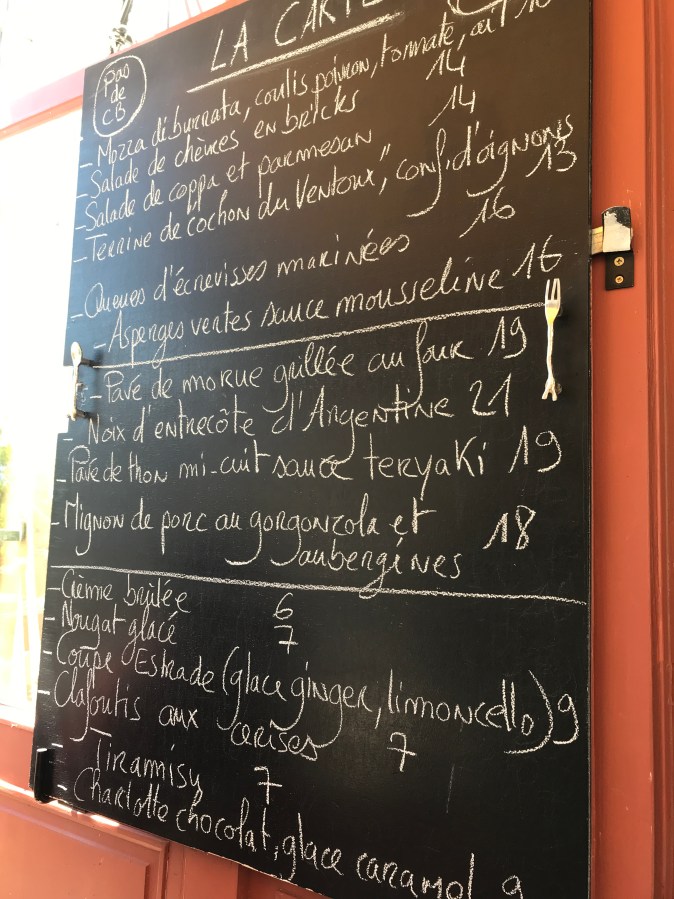 LA CARTE
Pas
de
CB
- Mozza di burrata, coulis poivron, tomate, ail 16
- Salade de chèvres en bricks 14
- Salade de coppa et parmesan 14
- Terrine de cochon du Ventoux", confid'oignons 13
- Queues d'écrevisses marinées 16
- Asperges vertes sauce mousseline 16
- Pavé de morue grillée au four 19
- Noix d'entrecôte d'Argentine 21
- Pavé de thon mi-cuit sauce teryaki 19
- Mignon de porc au gorgonzola et
aubergines 18
- Crème brûlée 6
- Nougat glacé 7
- Coupe Estrade (glace ginger, limoncello) 9
- Clafoutis aux cerises 7
- Tiramisu 7
- Charlotte chocolat, glace caramel 9